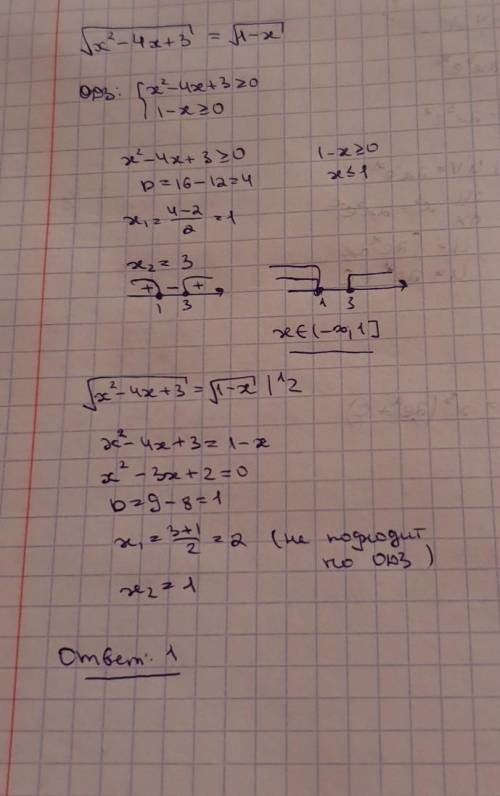 √x²-4x+3 = √1-x
ОДЗ: { x²-4x+3≥0
1-x≥0
x²-4x+3≥0 1-x≥0
D=16-12=4 x≤1
x₁=4-2/2=1
x₂=3
+ - +
1 3 1 3
x∈(-∞,1]
√x²-4x+3 = √1-x |^2
x²-4x+3=1-x
x²-3x+2=0
D=9-8=1
x₁=3+1/2=2 (не подходит
по ОДЗ)
x₂=1
Ответ: 1